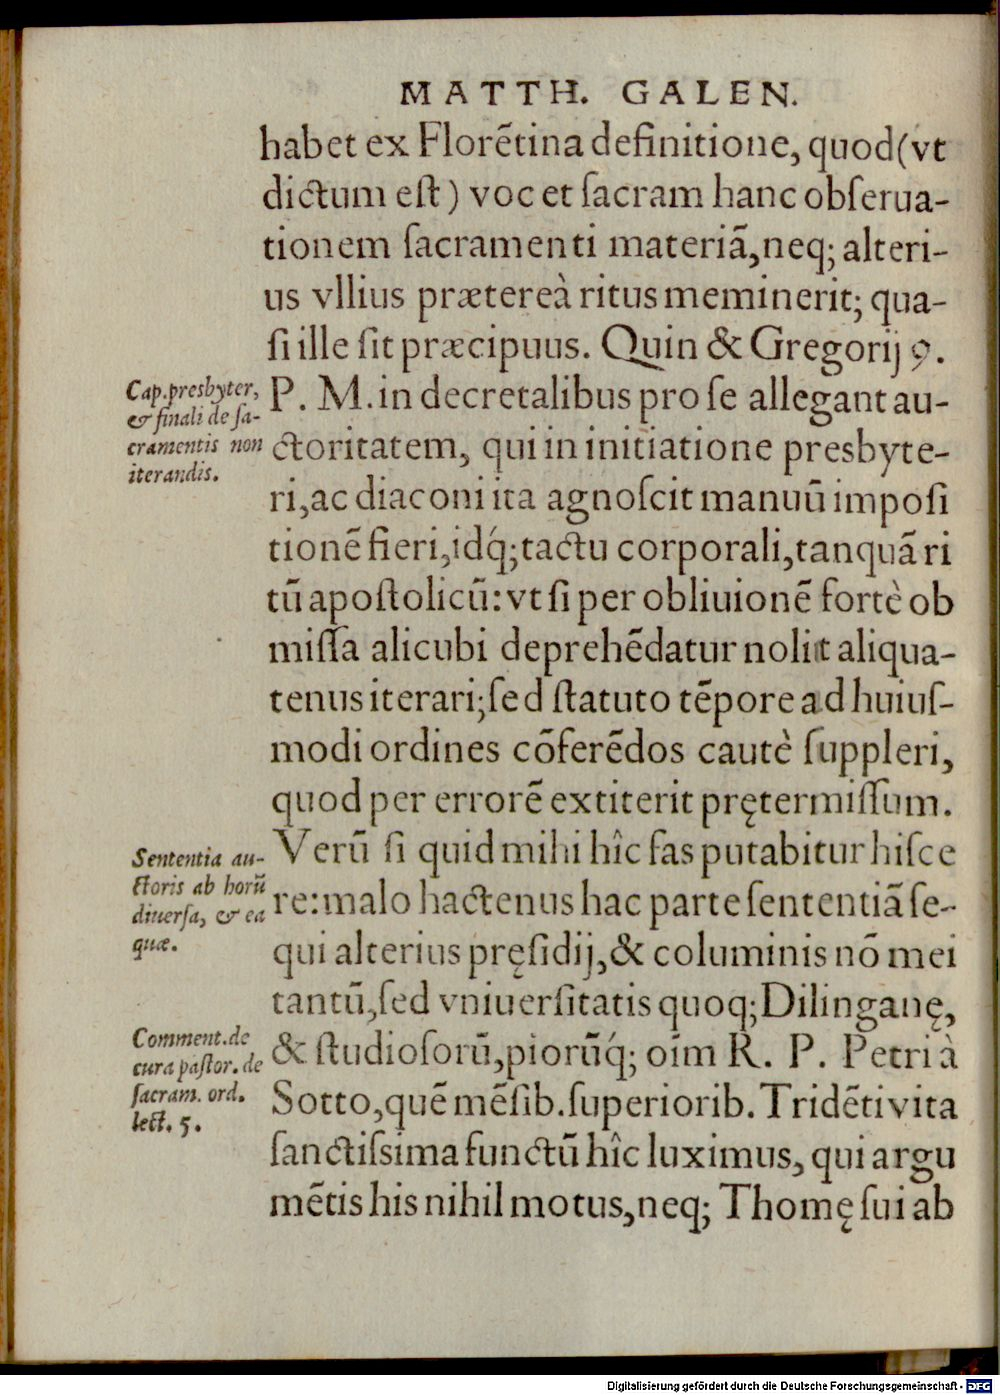 MATTH. GALEN.
habet ex Florẽtina definitione, quod (vt
dictum eſt) vocet ſacram hanc obſerua-
tionem ſacramenti materiã, neq; alteri-
us vllius prætereà ritus meminerit; qua-
ſi ille ſit præcipuus. Quin & Gregorij 9.
Cap. presbyter,
& finali de ſa-
cramentis non
iterandis.
P. M. in decretalibus pro ſe allegant au-
ctoritatem, qui in initiatione presbyte-
ri, ac diaconi ita agnoſcit manuũ impoſi
tionẽ fieri, idq́; tactu corporali, tanquã ri
tũ apoſtolicũ: vt ſi per obliuionẽ fortè ob
miſſa alicubi deprehẽdatur nolit aliqua-
tenus iterari; ſed ſtatuto tẽpore ad huiuſ-
modi ordines cõferẽdos cautè ſuppleri,
quod per errorẽ extiterit prętermiſſum.
Sententia au-
ctoris ab horũ
diuerſa, & ea
quæ.
Verũ ſi quid mihi hîc fas putabitur hiſce
re: malo hactenus hac parte ſententiã ſe-
qui alterius pręſidij, & columinis nõ mei
tantũ, ſed vniuerſitatis quoq; Dilinganę,
Comment. de
cura paſtor. de
ſacram. ord.
lect. 5.
& ſtudioſorũ, piorũq́; oĩm R. P. Petri à
Sotto, quẽ mẽſib. ſuperiorib. Tridẽti vita
ſanctiſsima functũ hîc luximus, qui argu
mẽtis his nihil motus, neq; Thomę ſui ab
Digitalisierung gefördert durch die Deutsche Forschungsgemeinschaft - DFG